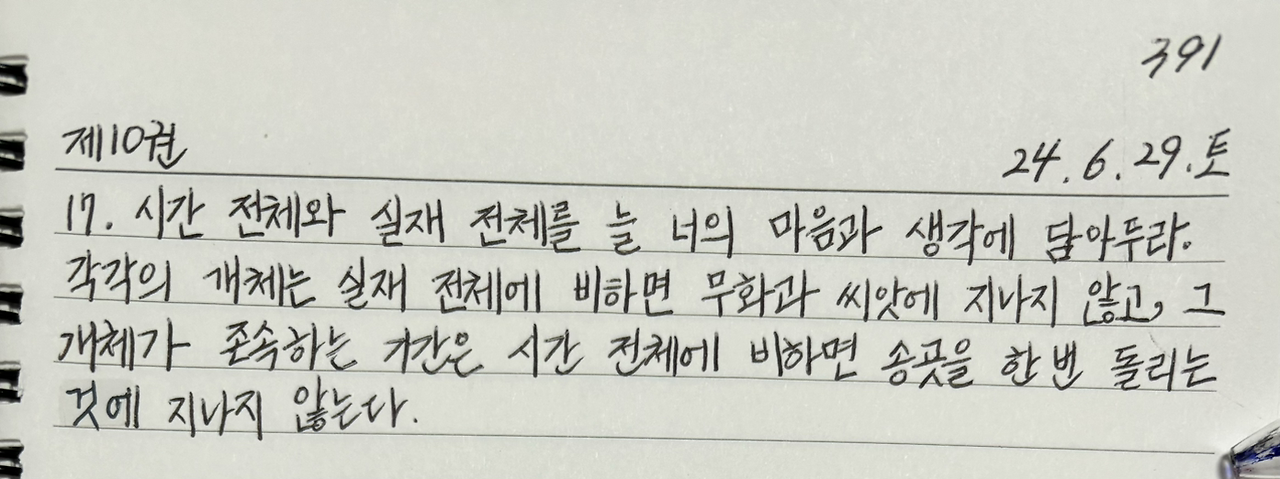 391
제10권
24.6.29.토
17. 시간 전체와 실재 전체를 늘 너의 마음과 생각에 담아두라.
각각의 개체는 실재 전체에 비하면 무화과 씨앗에 지나지 않고, 그
개체가 존속하는 기간은 시간 전체에 비하면 송곳을 한번 돌리는
것에 지나지 않는다.